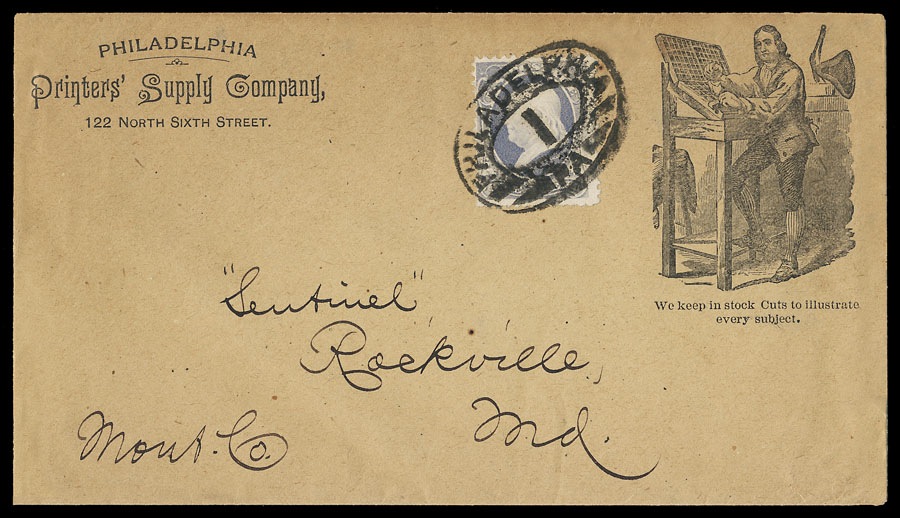 PHILADELPHIA
Printers' Supply Company,
122 NORTH SIXTH STREET.
PHILADELPHIA
1
PA
We keep in stock Cuts to illustrate
every subject.
"Sentinel"
Rockville,
Md.
Mont. Co.